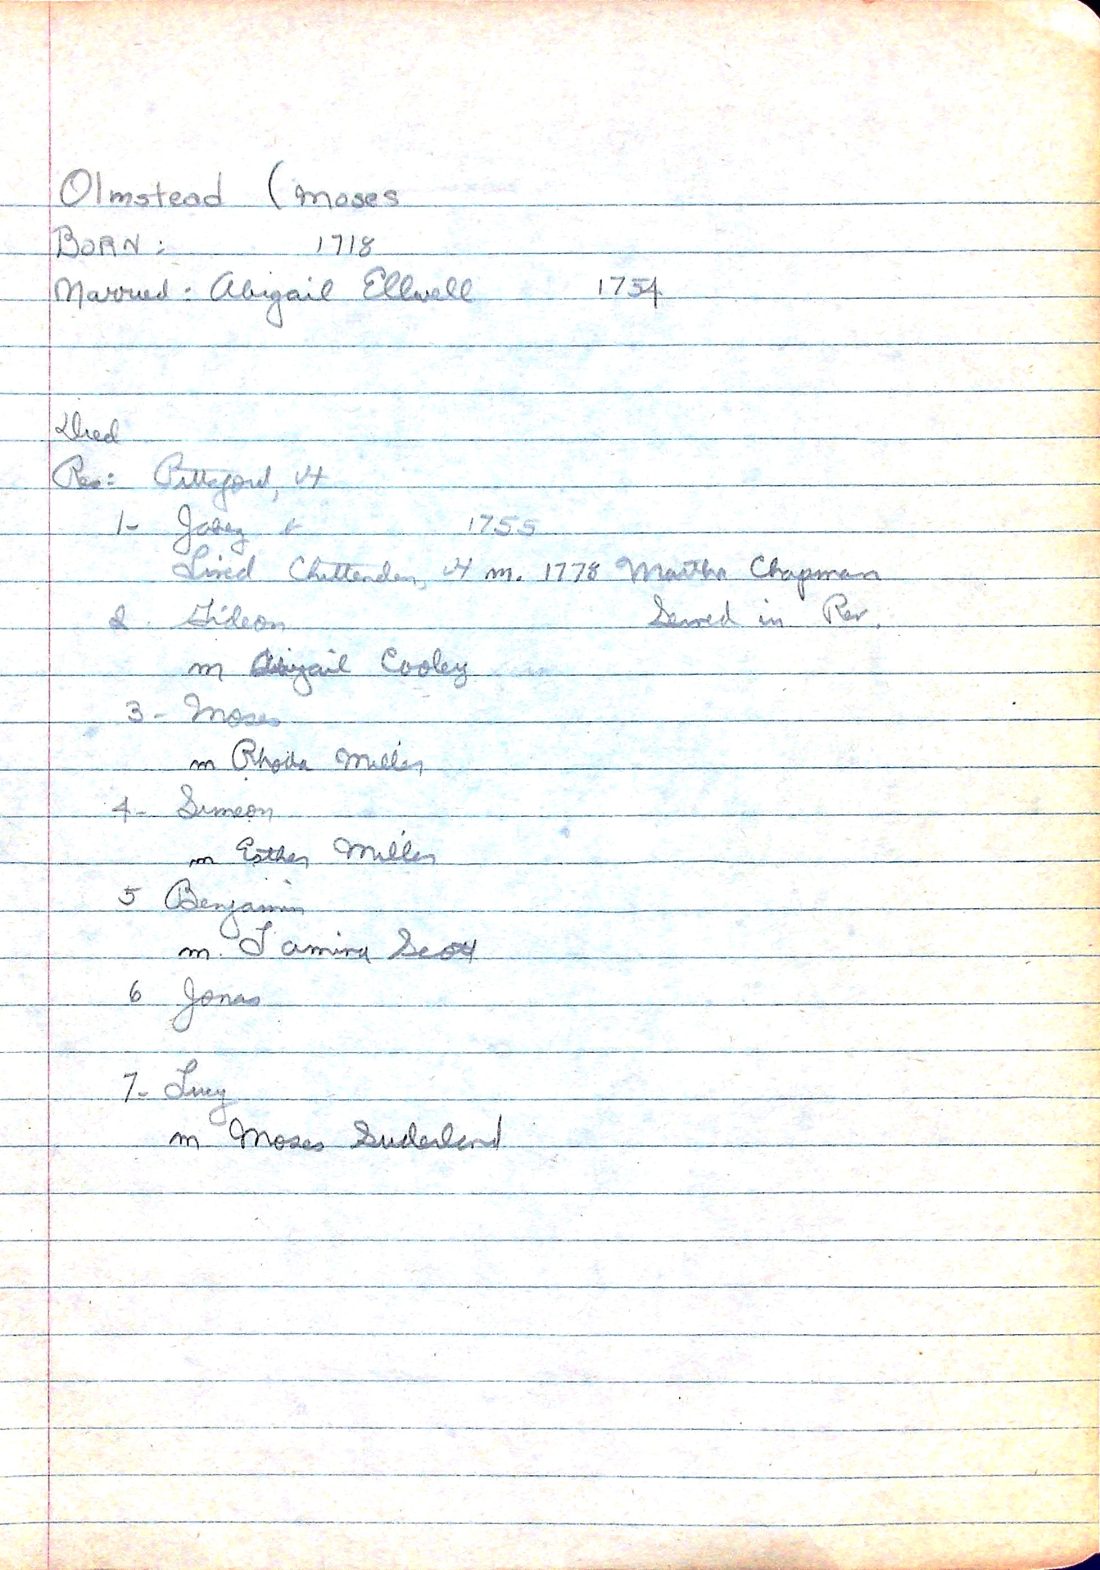 Olmstead (Moses
BORN: 1718
Married: Abigail Ellwell 1754
Died
Res: Pittsford, Vt
1- 1755
Lived Chittenden, Vt m. 1778 Martha Chapman
2. Gideon Served in Rev.
m Abigail Cooley
3- Moses
m Rhoda Miller
4- Simeon
m Esther Miller
5 Benjamin
m. Scott
6 Jonas
7- Lucy
m Moses Suderland